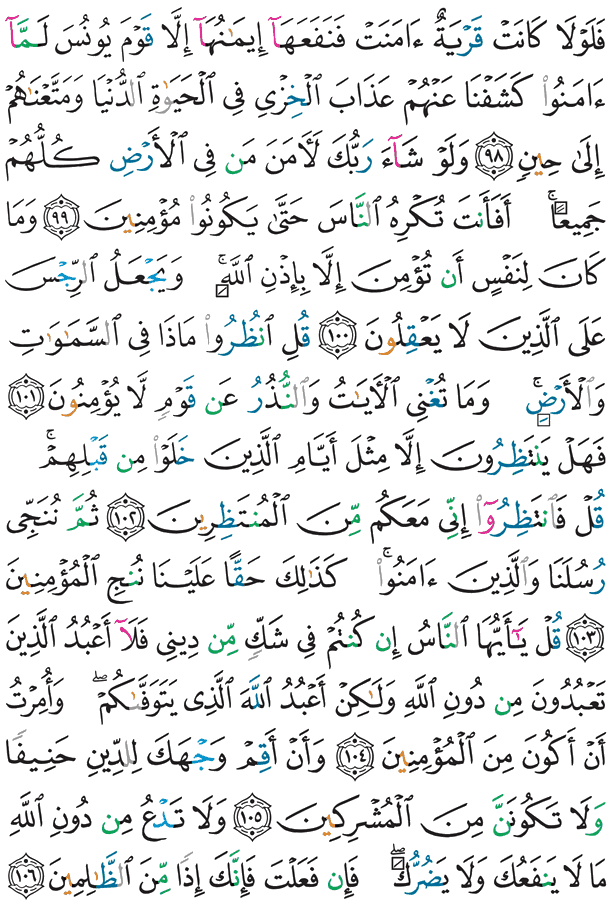 فَلَوْلَا كَانَتْ قَرْيَةٌ ءَامَنَتْ فَنَفَعَهَآ إِيمَٰنُهَآ إِلَّا قَوْمَ يُونُسَ لَمَّآ
ءَامَنُوا۟ كَشَفْنَا عَنْهُمْ عَذَابَ ٱلْخِزْىِ فِى ٱلْحَيَوٰةِ ٱلدُّنْيَا وَمَتَّعْنَٰهُمْ
إِلَىٰ حِينٍ ﴿٩٨﴾ وَلَوْ شَآءَ رَبُّكَ لَـَٔامَنَ مَن فِى ٱلْأَرْضِ كُلُّهُمْ
جَمِيعًا ۚ أَفَأَنتَ تُكْرِهُ ٱلنَّاسَ حَتَّىٰ يَكُونُوا۟ مُؤْمِنِينَ ﴿٩٩﴾ وَمَا
كَانَ لِنَفْسٍ أَن تُؤْمِنَ إِلَّا بِإِذْنِ ٱللَّهِ ۚ وَيَجْعَلُ ٱلرِّجْسَ
عَلَى ٱلَّذِينَ لَا يَعْقِلُونَ ﴿١٠٠﴾ قُلِ ٱنظُرُوا۟ مَاذَا فِى ٱلسَّمَٰوَٰتِ
وَٱلْأَرْضِ ۚ وَمَا تُغْنِى ٱلْـَٔايَٰتُ وَٱلنُّذُرُ عَن قَوْمٍ لَّا يُؤْمِنُونَ ﴿١٠١﴾
فَهَلْ يَنتَظِرُونَ إِلَّا مِثْلَ أَيَّامِ ٱلَّذِينَ خَلَوْا۟ مِن قَبْلِهِمْ ۚ
قُلْ فَٱنتَظِرُوٓا۟ إِنِّى مَعَكُم مِّنَ ٱلْمُنتَظِرِينَ ﴿١٠٢﴾ ثُمَّ نُنَجِّى
رُسُلَنَا وَٱلَّذِينَ ءَامَنُوا۟ ۚ كَذَٰلِكَ حَقًّا عَلَيْنَا نُنجِ ٱلْمُؤْمِنِينَ
﴿١٠٣﴾ قُلْ يَٰٓأَيُّهَا ٱلنَّاسُ إِن كُنتُمْ فِى شَكٍّ مِّن دِينِى فَلَآ أَعْبُدُ ٱلَّذِينَ
تَعْبُدُونَ مِن دُونِ ٱللَّهِ وَلَٰكِنْ أَعْبُدُ ٱللَّهَ ٱلَّذِى يَتَوَفَّىٰكُمْ ۖ وَأُمِرْتُ
أَنْ أَكُونَ مِنَ ٱلْمُؤْمِنِينَ ﴿١٠٤﴾ وَأَنْ أَقِمْ وَجْهَكَ لِلدِّينِ حَنِيفًا
وَلَا تَكُونَنَّ مِنَ ٱلْمُشْرِكِينَ ﴿١٠٥﴾ وَلَا تَدْعُ مِن دُونِ ٱللَّهِ
مَا لَا يَنفَعُكَ وَلَا يَضُرُّكَ ۖ فَإِن فَعَلْتَ فَإِنَّكَ إِذًا مِّنَ ٱلظَّٰلِمِينَ ﴿١٠٦﴾